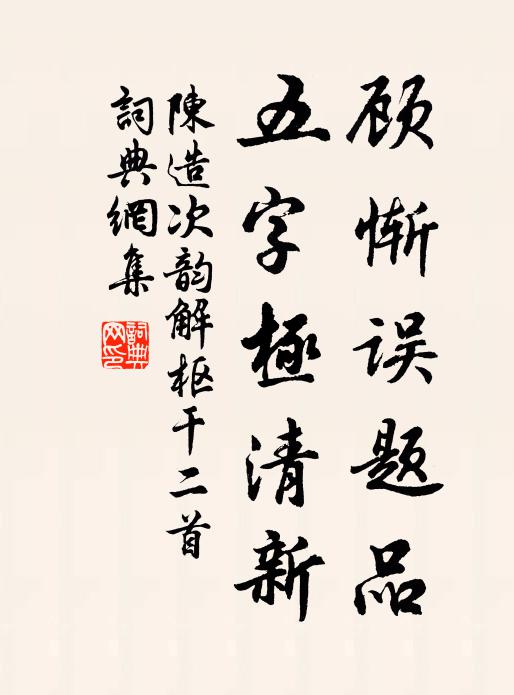 顾惭误题品
五字極清新
陳造次韵解枢干二首
詞典網集
詞典网印